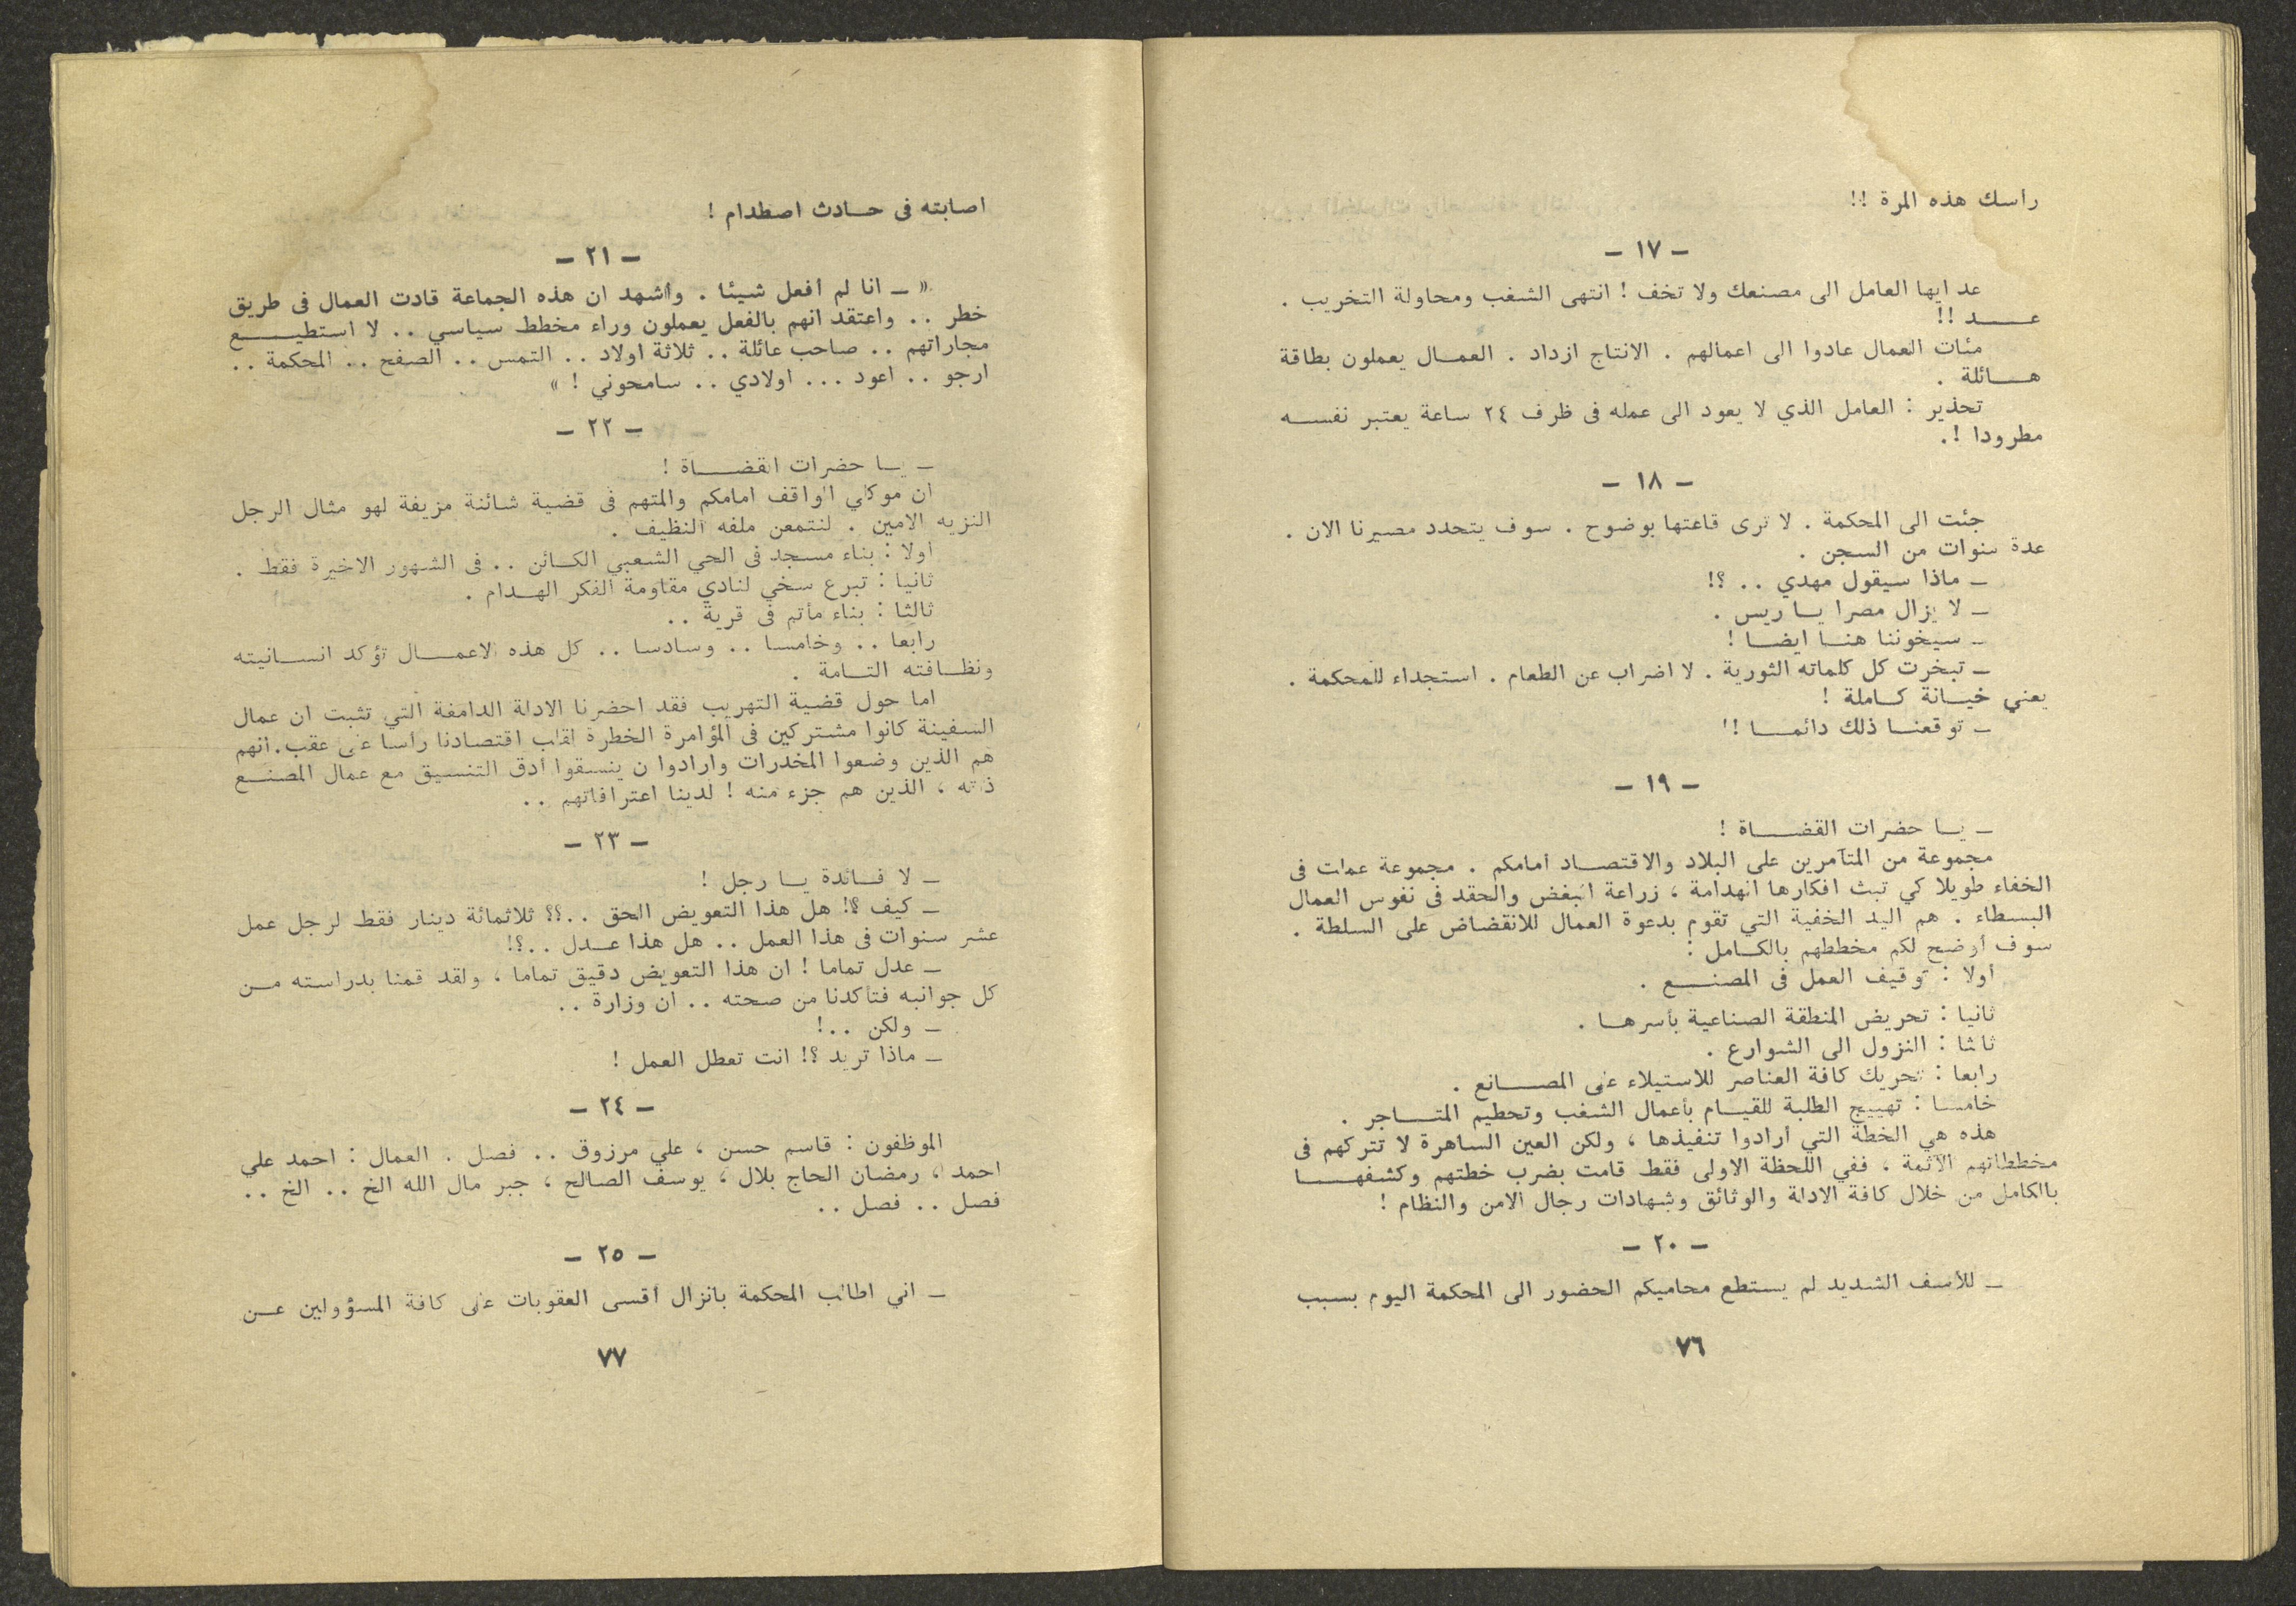 راسك هذه المرة !!
— ١٧ —
عد ايها العامل الى مصنعك ولا تخف ! انتهى الشغب ومحاولة التخريب .
عـــــد !!
مئات العمال عادوا الى اعمالهم . الانتاج ازداد . العمـال يعملون بطاقة
هــائلة .
تحذير : العامل الذي لا يعود الى عمله فى ظرف ٢٤ ساعة يعتبر نفسـه
مطرودا !.
— ١٨ —
جئت الى المحكمة . لا ترى قاعتها بوضوح . سوف يتحدد مصيرنا الان .
عدة سنوات من السجن .
— ماذا سيقول مهدي .. ؟!
— لا يزال مصرا يـا ريس .
— سيخوننا هنـا ايضـا !
— تبخرت كل كلماته الثورية . لا اضراب عن الطعام . استجداء للمحكمة .
يعني خيـانة كـاملة !
— توقعنـا ذلك دائمـا !!
— ١٩ —
— يـا حضرات القضـاة !
مجموعة من المتآمرين على البلاد والاقتصـاد امامكم . مجموعة عملت فى
الخفاء طويلا كي تبث افكارها الهدامة ، زراعة البغض والحقد فى نفوس العمال
البسطاء . هم اليد الخفية التي تقوم بدعوة العمال للانقضاض على السلطة .
سوف أوضح لكم مخططهم بالكـامل :
أولا : توقيف العمل فى المصنـع .
ثانيا : تحريض المنطقة الصناعية بأسرهـا .
ثالثا : النزول الى الشوارع .
رابعا : تحريك كافة العناصر للاستيلاء على المصـانع .
خامسا : تهييج الطلبة للقيـام بأعمال الشغب وتحطيم المتـاجر .
هذه هي الخطة التي أرادوا تنفيذها ، ولكن العين الساهرة لا تتركهم فى
مخططاتهم الآثمة ، ففي اللحظة الاولى فقط قامت بضرب خطتهم وكشفهـا
بالكامل من خلال كافة الادلة والوثائق وشهادات رجال الامن والنظام !
— ٢٠ —
— للأسف الشديد لم يستطع محاميكم الحضور الى المحكمة اليوم بسبب
٧٦
اصابته فى حـادث اصطدام !
— ٢١ —
« — انا لم افعل شيئا . وأشهد ان هذه الجماعة قادت العمال فى طريق
خطر .. واعتقد انهم بالفعل يعملون وراء مخطط سياسي .. لا استطيـع
مجاراتهم .. صاحب عائلة .. ثلاثة اولاد .. التمس .. الصفح .. المحكمة ..
ارجو .. اعود ... اولادي .. سامحوني ! »
— ٢٢ —
— يـا حضرات القضـاة !
ان موكلي الواقف امامكم والمتهم فى قضية شائنة مزيفة لهو مثال الرجل
النزيه الامين . لنتمعن ملفه النظيف .
اولا : بناء مسجد فى الحي الشعبي الكـائن .. فى الشهور الاخيرة فقط .
ثانيا : تبرع سخي لنادي مقاومة الفكر الهـدام .
ثالثا : بناء مأتم فى قرية ..
رابعا .. وخامسا .. وسادسا .. كل هذه الاعمـال تؤكد انسـانيته
ونظـافته التـامة .
اما حول قضية التهريب فقد احضرنا الادلة الدامغة التي تثبت ان عمال
السفينة كانوا مشتركين فى المؤامرة الخطرة لقلب اقتصادنا رأسا على عقب. انهم
هم الذين وضعوا المخدرات وارادوا ن ينسقوا أدق التنسيق مع عمال المصنـع
ذاته ، الذين هم جزء منه ! لدينا اعترافاتهم ..
— ٢٣ —
— لا فـائدة يـا رجل !
— كيف ؟! هل هذا التعويض الحق ..؟؟ ثلاثمائة دينار فقط لرجل عمل
عشر سنوات فى هذا العمل .. هل هذا عـدل ..؟!
— عدل تماما ! ان هذا التعويض دقيق تماما ، ولقد قمنا بدراسته مـن
كل جوانبه فتأكدنا من صحته .. ان وزارة ..
— ولكن ..!
— ماذا تريد ؟! انت تعطل العمل !
— ٢٤ —
الموظفون : قاسم حسن ، علي مرزوق .. فصل . العمال : احمد علي
احمد ، رمضان الحاج بلال ، يوسف الصالح ، جبر مال الله الخ .. الخ ..
فصل .. فصل ..
— ٢٥ —
— اني اطالب المحكمة بانزال أقسى العقوبات على كافة المسؤولين عـن
٧٧